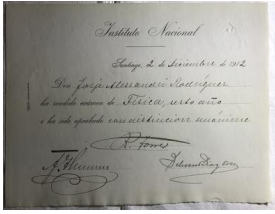 Instituto Nacional
Santiago, 2 de Diciembre de 1912
Don Jorje Alessandri Rodríguez
ha rendido exámen de Física, sesto año
i ha sido aprobado con distincion unánime